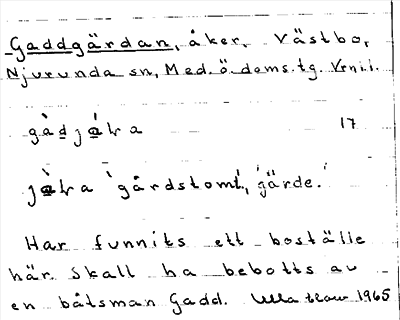 Gaddgärdan, åker, Västbo,
Njurunda sn, Med. ö. doms. tg. Vrnl.
17
'gårdstomt', 'gärde.'
Har funnits ett boställe
här. Skall ha bebotts av
en båtsman Gadd. Ulla 1965